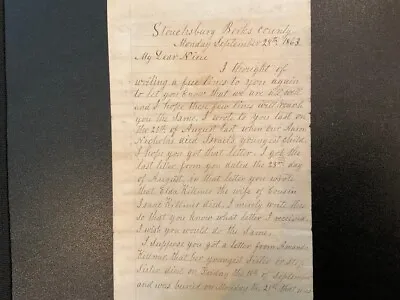 Stouchsburg Berks County
Monday September 28th 1863.
My Dear Niece
I thought of
writing a few lines to you again
to let you know that we are all well
and I hope these few lines will reach
you the same. I wrote to you last on
the 21st of August last when our Aaron
Nicholas died Israel's youngest child.
I hope you got that letter. I got the
last letter from you dated the 23rd day
of August, in that letter you wrote
that Eliza Killmer the wife of Cousin
Isaac Killmer died. I merely write this
so that you know what letter I received
I wish you would do the same.
I suppose you got a letter from Amanda
Killmer that her youngest Sister
Sister died on Friday the of September
and was buried on Monday the 21st